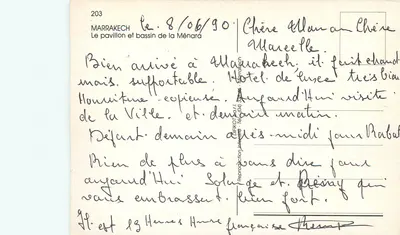 203
MARRAKECH
Le pavillon et bassin de la Ménara
le. 8/06/90.
Chère Maman Chère
Marcelle.
Bien arrivé à Marrakech il fait chaud
mais supportable. Hotel de luxe très bien
Nourriture copieuse. Aujourd'Hui visite
de la Ville. et demain matin.
Départ demain après-midi pour Rabat
Rien de plus à vous dire pour
aujourd'Hui Solange et qui
vous embrassent bien fort.
Il est 19 Heures Heure française